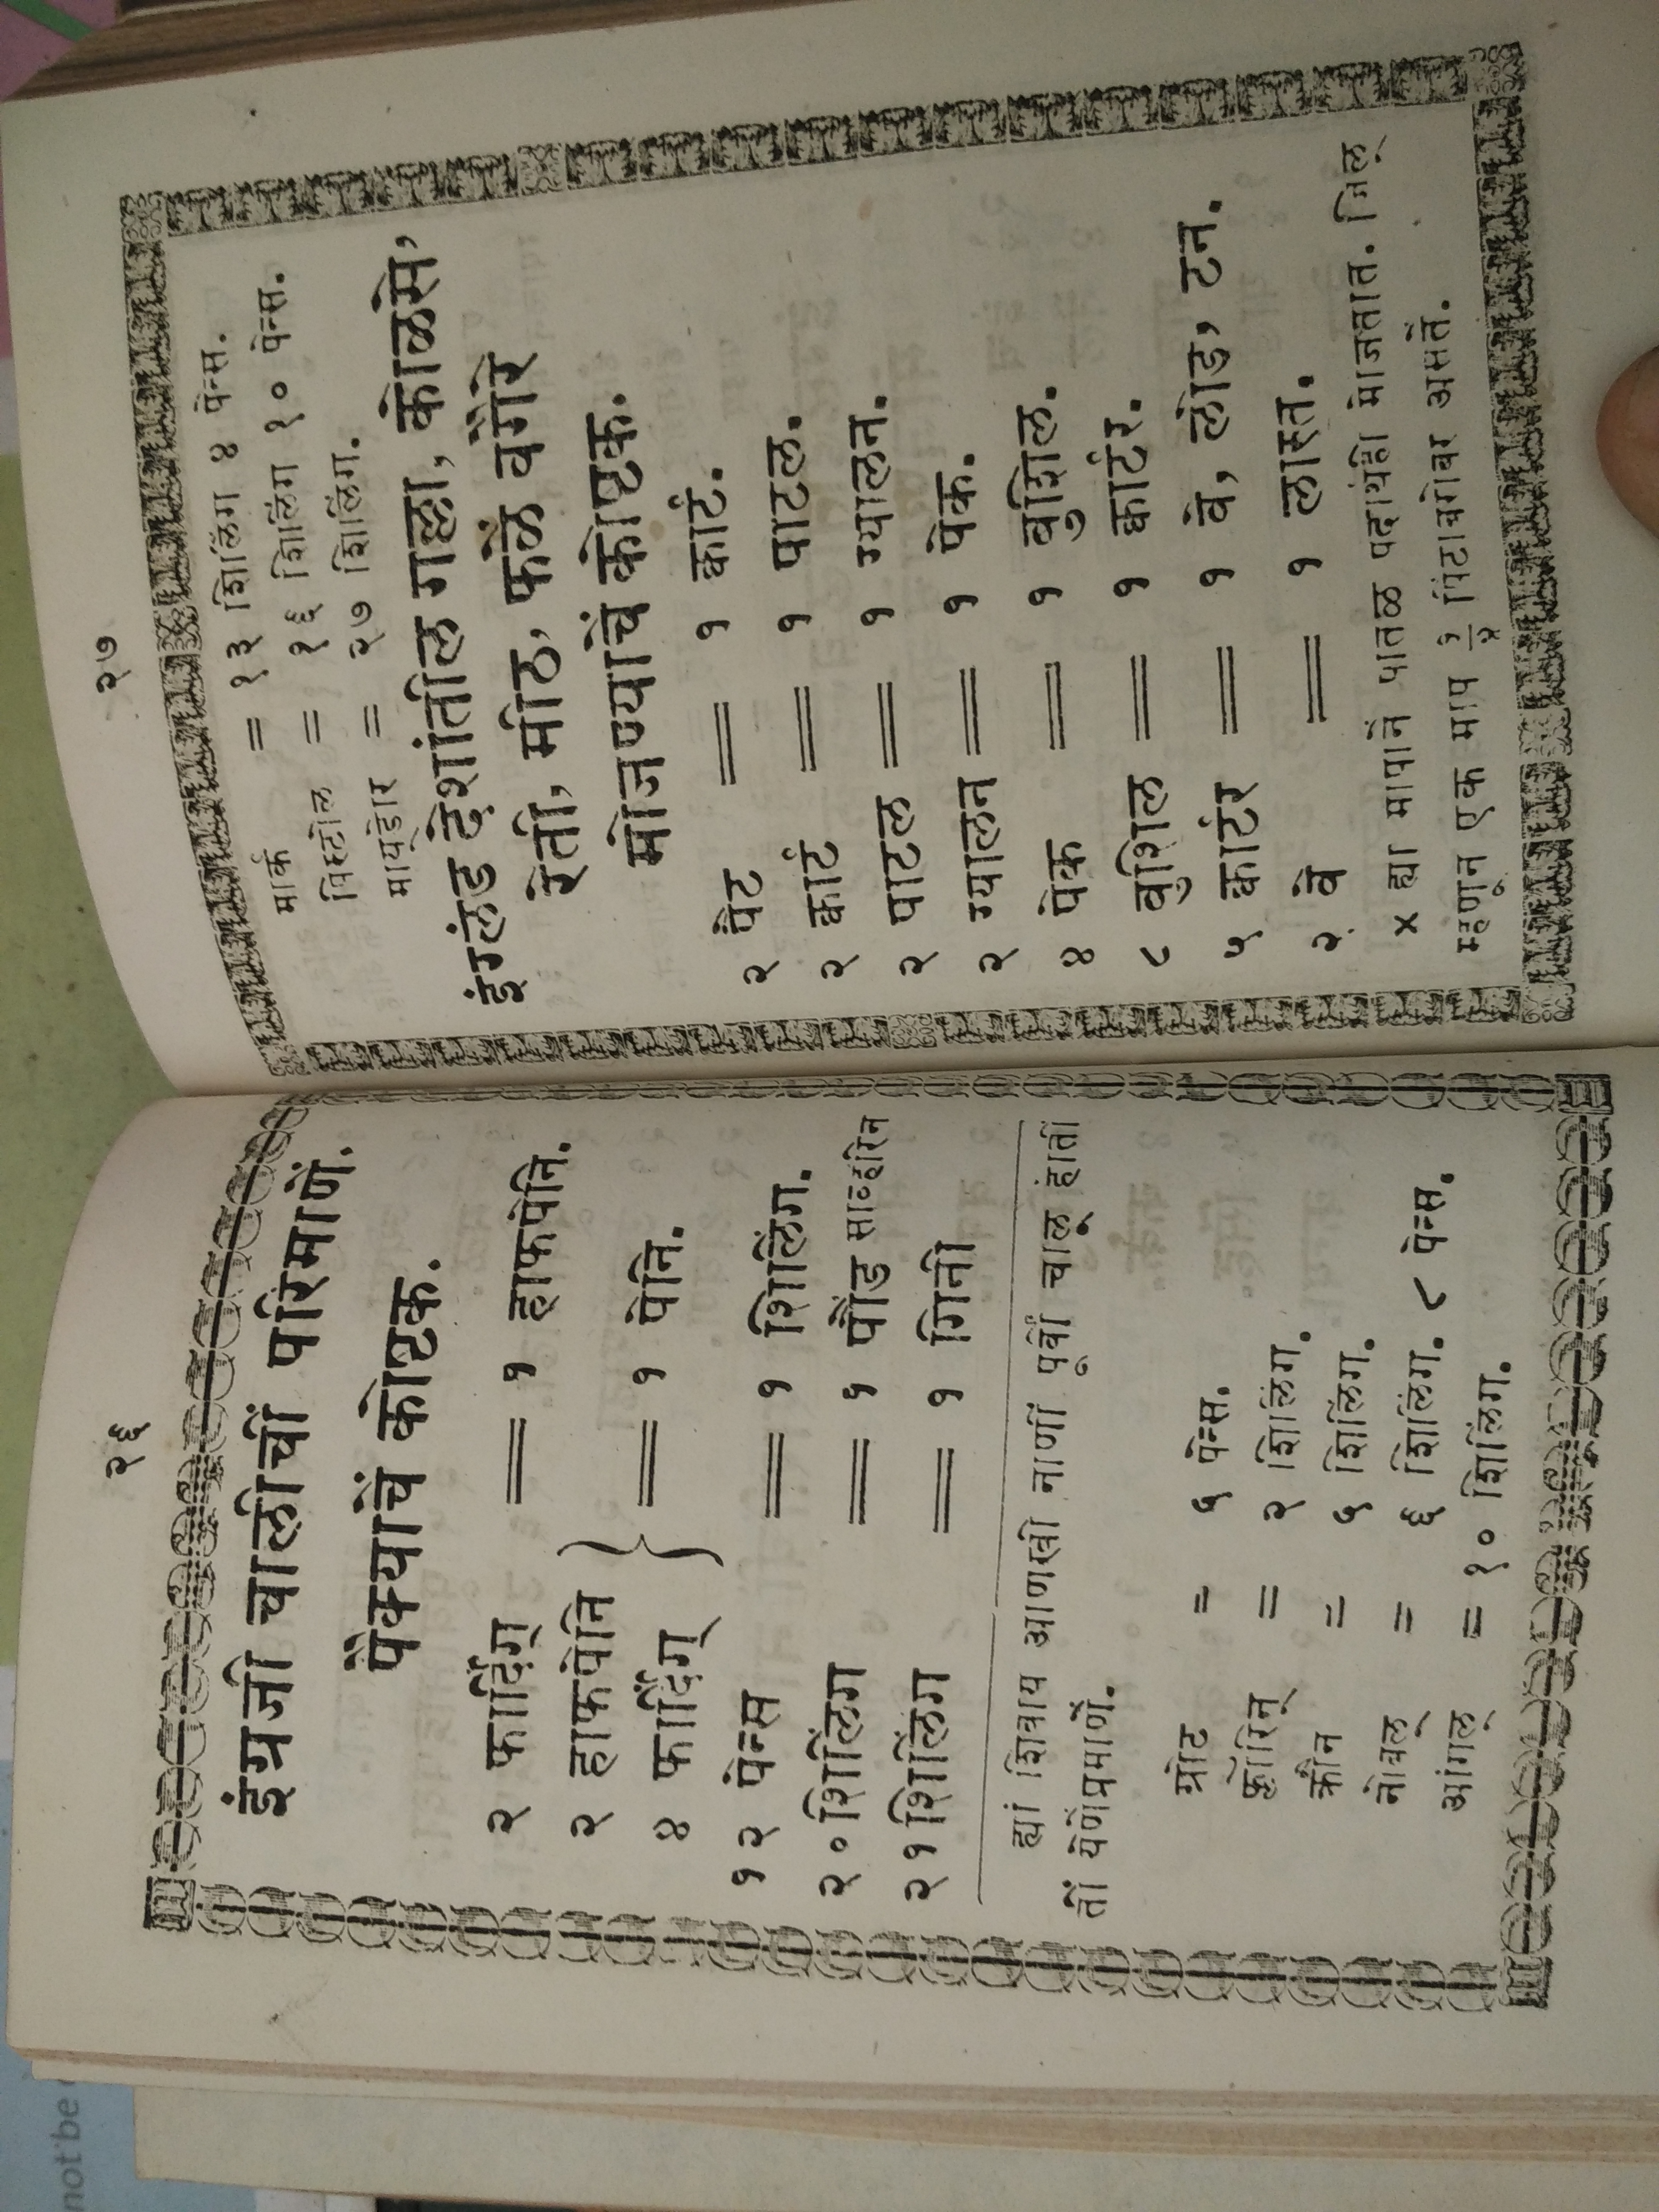 २६
इंग्रजी चालीचीं परिमाणें.
पैक्याचें कोष्टक.
२ फार्दिंग् = १ हाफपेनि.
२ हाफपेनि
४ फार्दिंग् } = १ पेनि.
१२ पेन्स = १ शिलिंग.
२० शिलिंग = १ पौंड साव्हरिन
२१ शिलिंग = १ गिनी
ह्यां शिवाय आणखी नाणीं पूर्वी चालू होतीं
तीं येणेंप्रमाणें.
ग्रोट = ५ पेन्स.
फ्लोरिन् = २ शिलिंग.
क्रौन = ५ शिलिंग.
नोबल् = ६ शिलिंग. ८ पेन्स.
आंगल् = १० शिलिंग.
२७
मार्क = १३ शिलिंग ४ पेन्स.
पिस्टोल = १६ शिलिंग १० पेन्स.
मायडोर = २७ शिलिंग.
इंग्लंड देशांतील गल्ला, कोळसे,
रेती, मीठ, फळें वगैरे
मोजण्याचें कोष्टक.
२ पैंट = १ कार्ट.
२ कार्ट = १ पाटल.
२ पाटल = १ ग्यालन.
२ ग्यालन = १ पेक.
४ पेक = १ बुशिल.
८ बुशिल = १ कार्टर.
५ कार्टर = १ वे, लोड, टन.
२ वे = १ लास्त.
× ह्या मापानें पातळ पदार्थही मोजतात. जिल्
म्हणून एक माप १/४ पिंटाबरोबर असतें.
not be